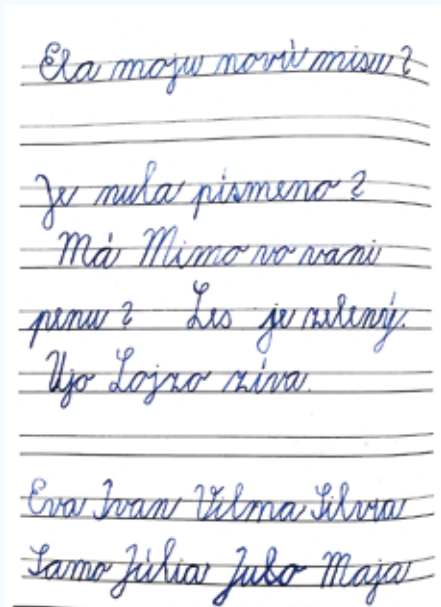 Ela moju novú misu?
Je nula písmeno?
Má Mimo vo vani
penu? Les je zelený.
Ujo Lojzo zíva.
Eva Ivan Vilma Silvia
Samo Júlia Julo Maja